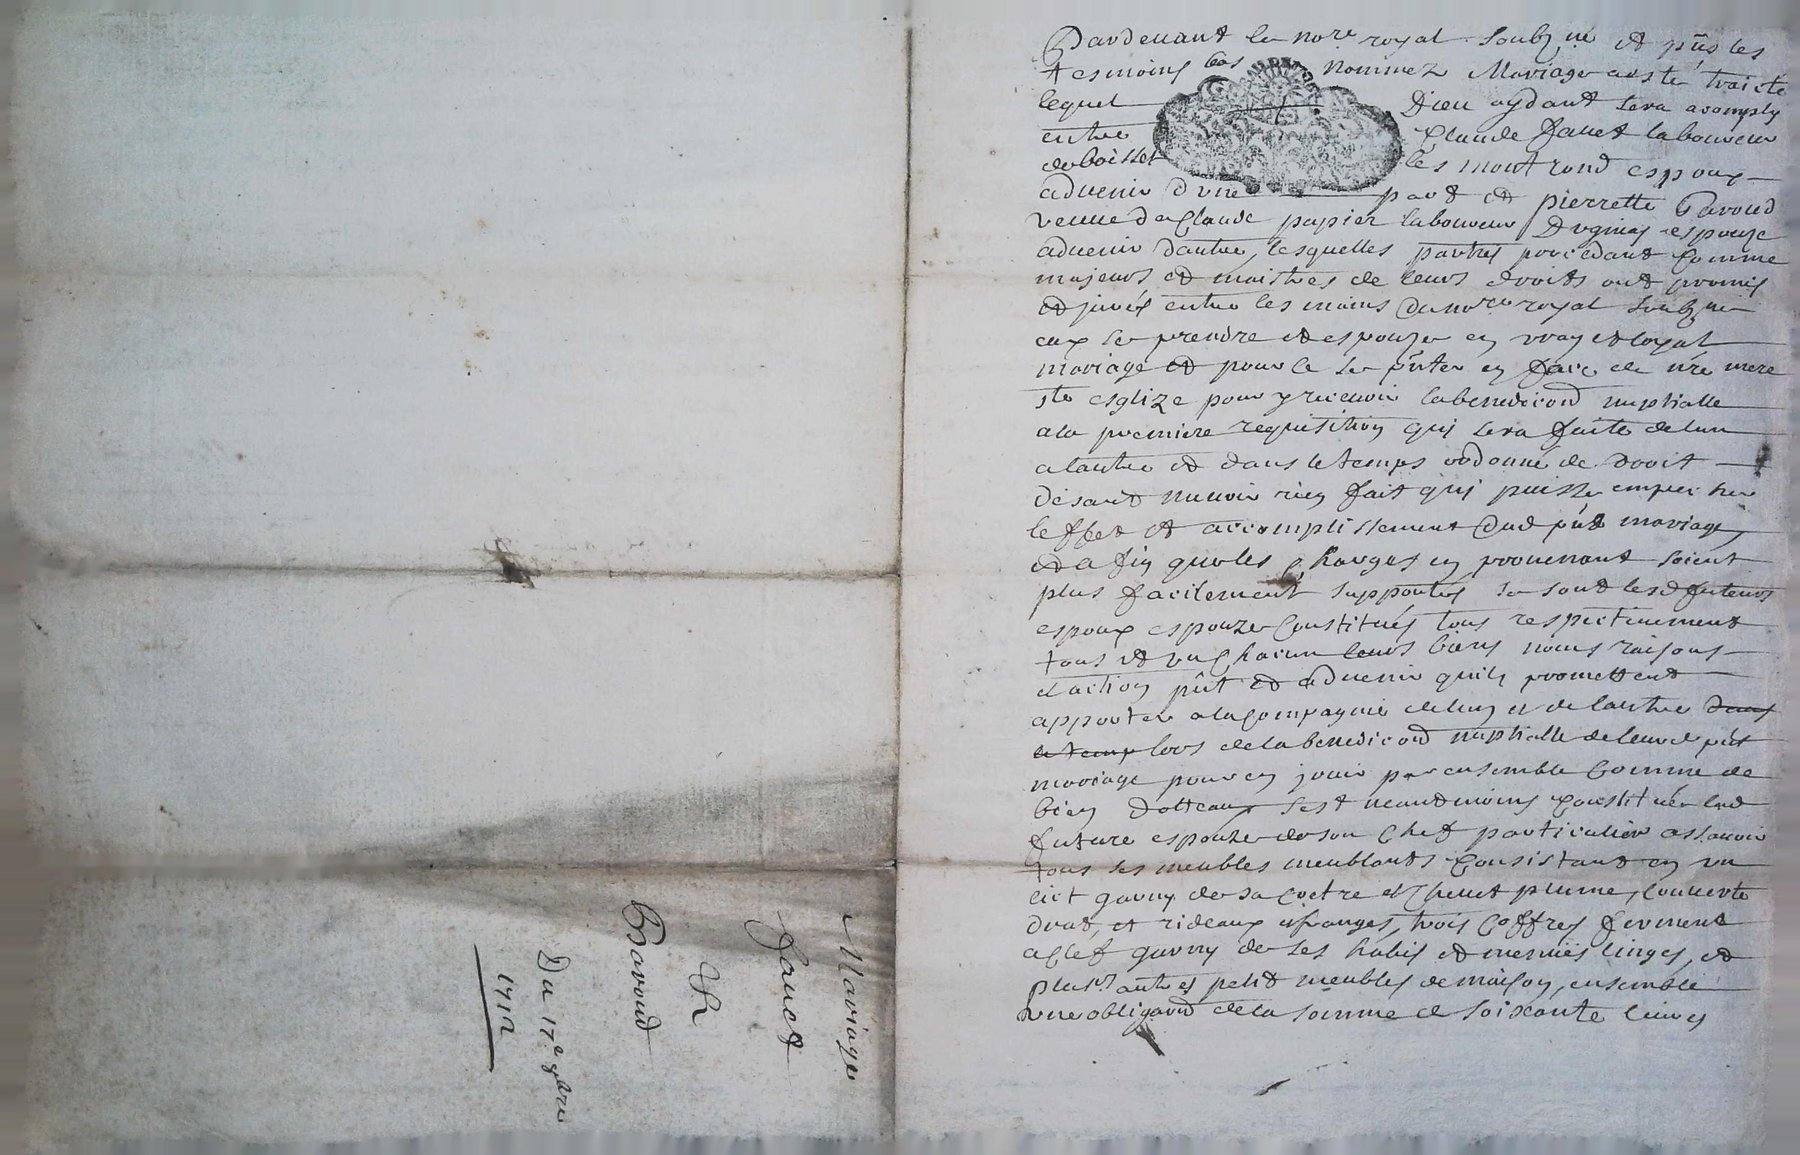 Pardevant le no.re royal soubz.né et p.ns les
tesmoins bas nommez Mariage a esté traicté
lequel Dieu aydant sera acomply
entre Claude Janet laboureur
de boisset les montrond espoux
advenir d'une part et pierrette Baroud
veuve de Claude papier laboureur espouze
advenir d'autre, lesquelles parties procedant comme
majeurs et maistres de leurs droits ont promis
et jurés entre les mains du no.re royal soubz.né
eux se prendre et espouzer en vray et loyal
mariage et pour ce se p.nter en face de n.re mere
s.te esglize pour y recevoir la benediction nuptialle
a la premiere requisition quj sera faite de l'un
a lautre et dans le temps ordonné de droit
disant n'avoir rien fait quj puisse empecher
leffet et accomplissement dud p.nt mariage,
et a fin que les charges en provenant soient
plus facilement supportés se sont lesd futeurs
espoux espouze Constitués tous respectivement
tous et un chacun leurs biens noms raisons
et action p.nt et advenir quils promettent
apporter a la compagnie de lun et de lautre dans
le temp lors de la benediction nuptialle de leurd p.nt
mariage pour en jouir par ensemble Comme de
bien dotteaux sest neantmoins constituée lad
future espouze de son chef particulier assavoir
tous ses meubles meublants Consistant en un
lict garny de sa coetre et chevet plume, couverte
drat, et rideaux a franges, trois coffres ferment
a clef garny de ses habis et menües linges, et
plus.rs autres petit meubles de maison, ensemble
une obligaôn de la somme de soixante livres
Mariage
Janet
Et
Baroud
Du 17.e 8bre
1712